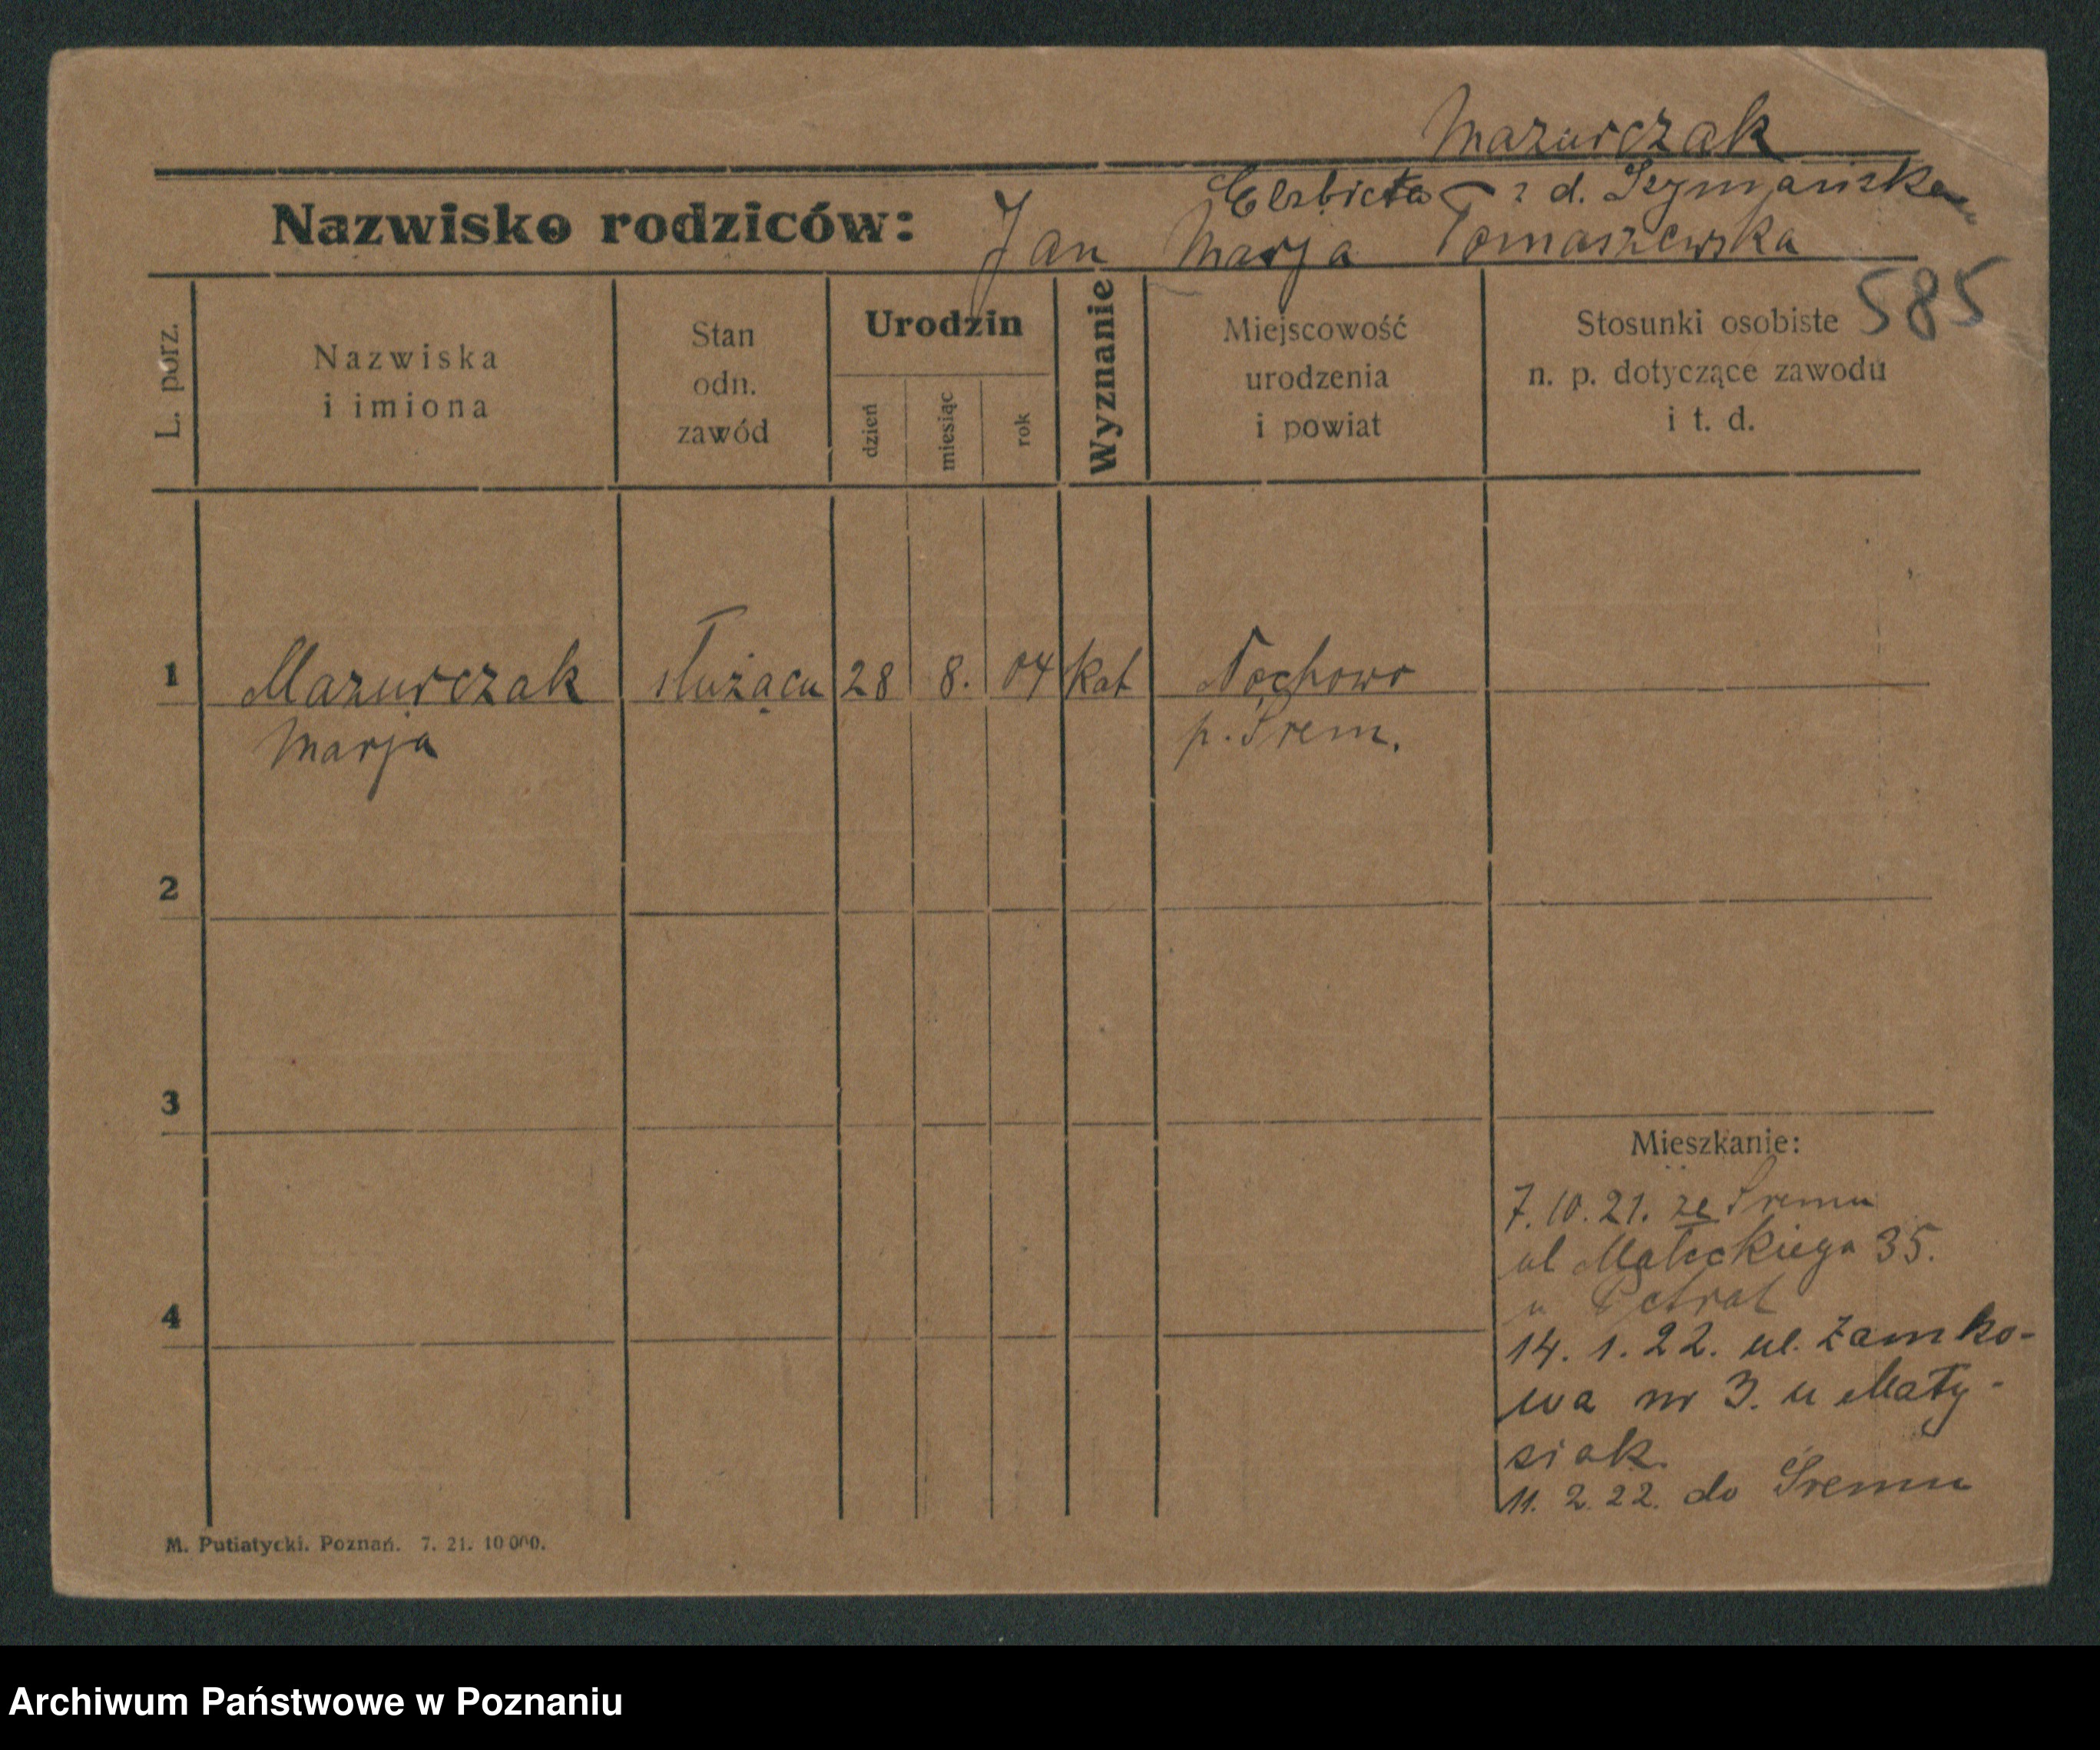 Mazurczak
Elzbieta z d. Szymańska
Nazwisko rodziców: Jan Marja Tomaszewska
585
L. porz.
Nazwiska
i imiona
Stan
odn.
zawód
Urodzin
dzień
miesiąc
rok
Wyznanie
Miejscowość
urodzenia
i powiat
Stosunki osobiste
n. p. dotyczące zawodu
i t. d.
1 Mazurczak służąca 28 8. 04 kat Nochowo
Marja p. Śrem.
2
3
4
Mieszkanie:
7. 10. 21. ze Śremu
ul Małeckiego 35.
u
14. 1. 22. ul. Zamko-
wa nr 3. u Maty-
siak.
11. 2. 22. do Śremu
M. Putiatycki. Poznań. 7. 21. 10 000.
Archiwum Państwowe w Poznaniu